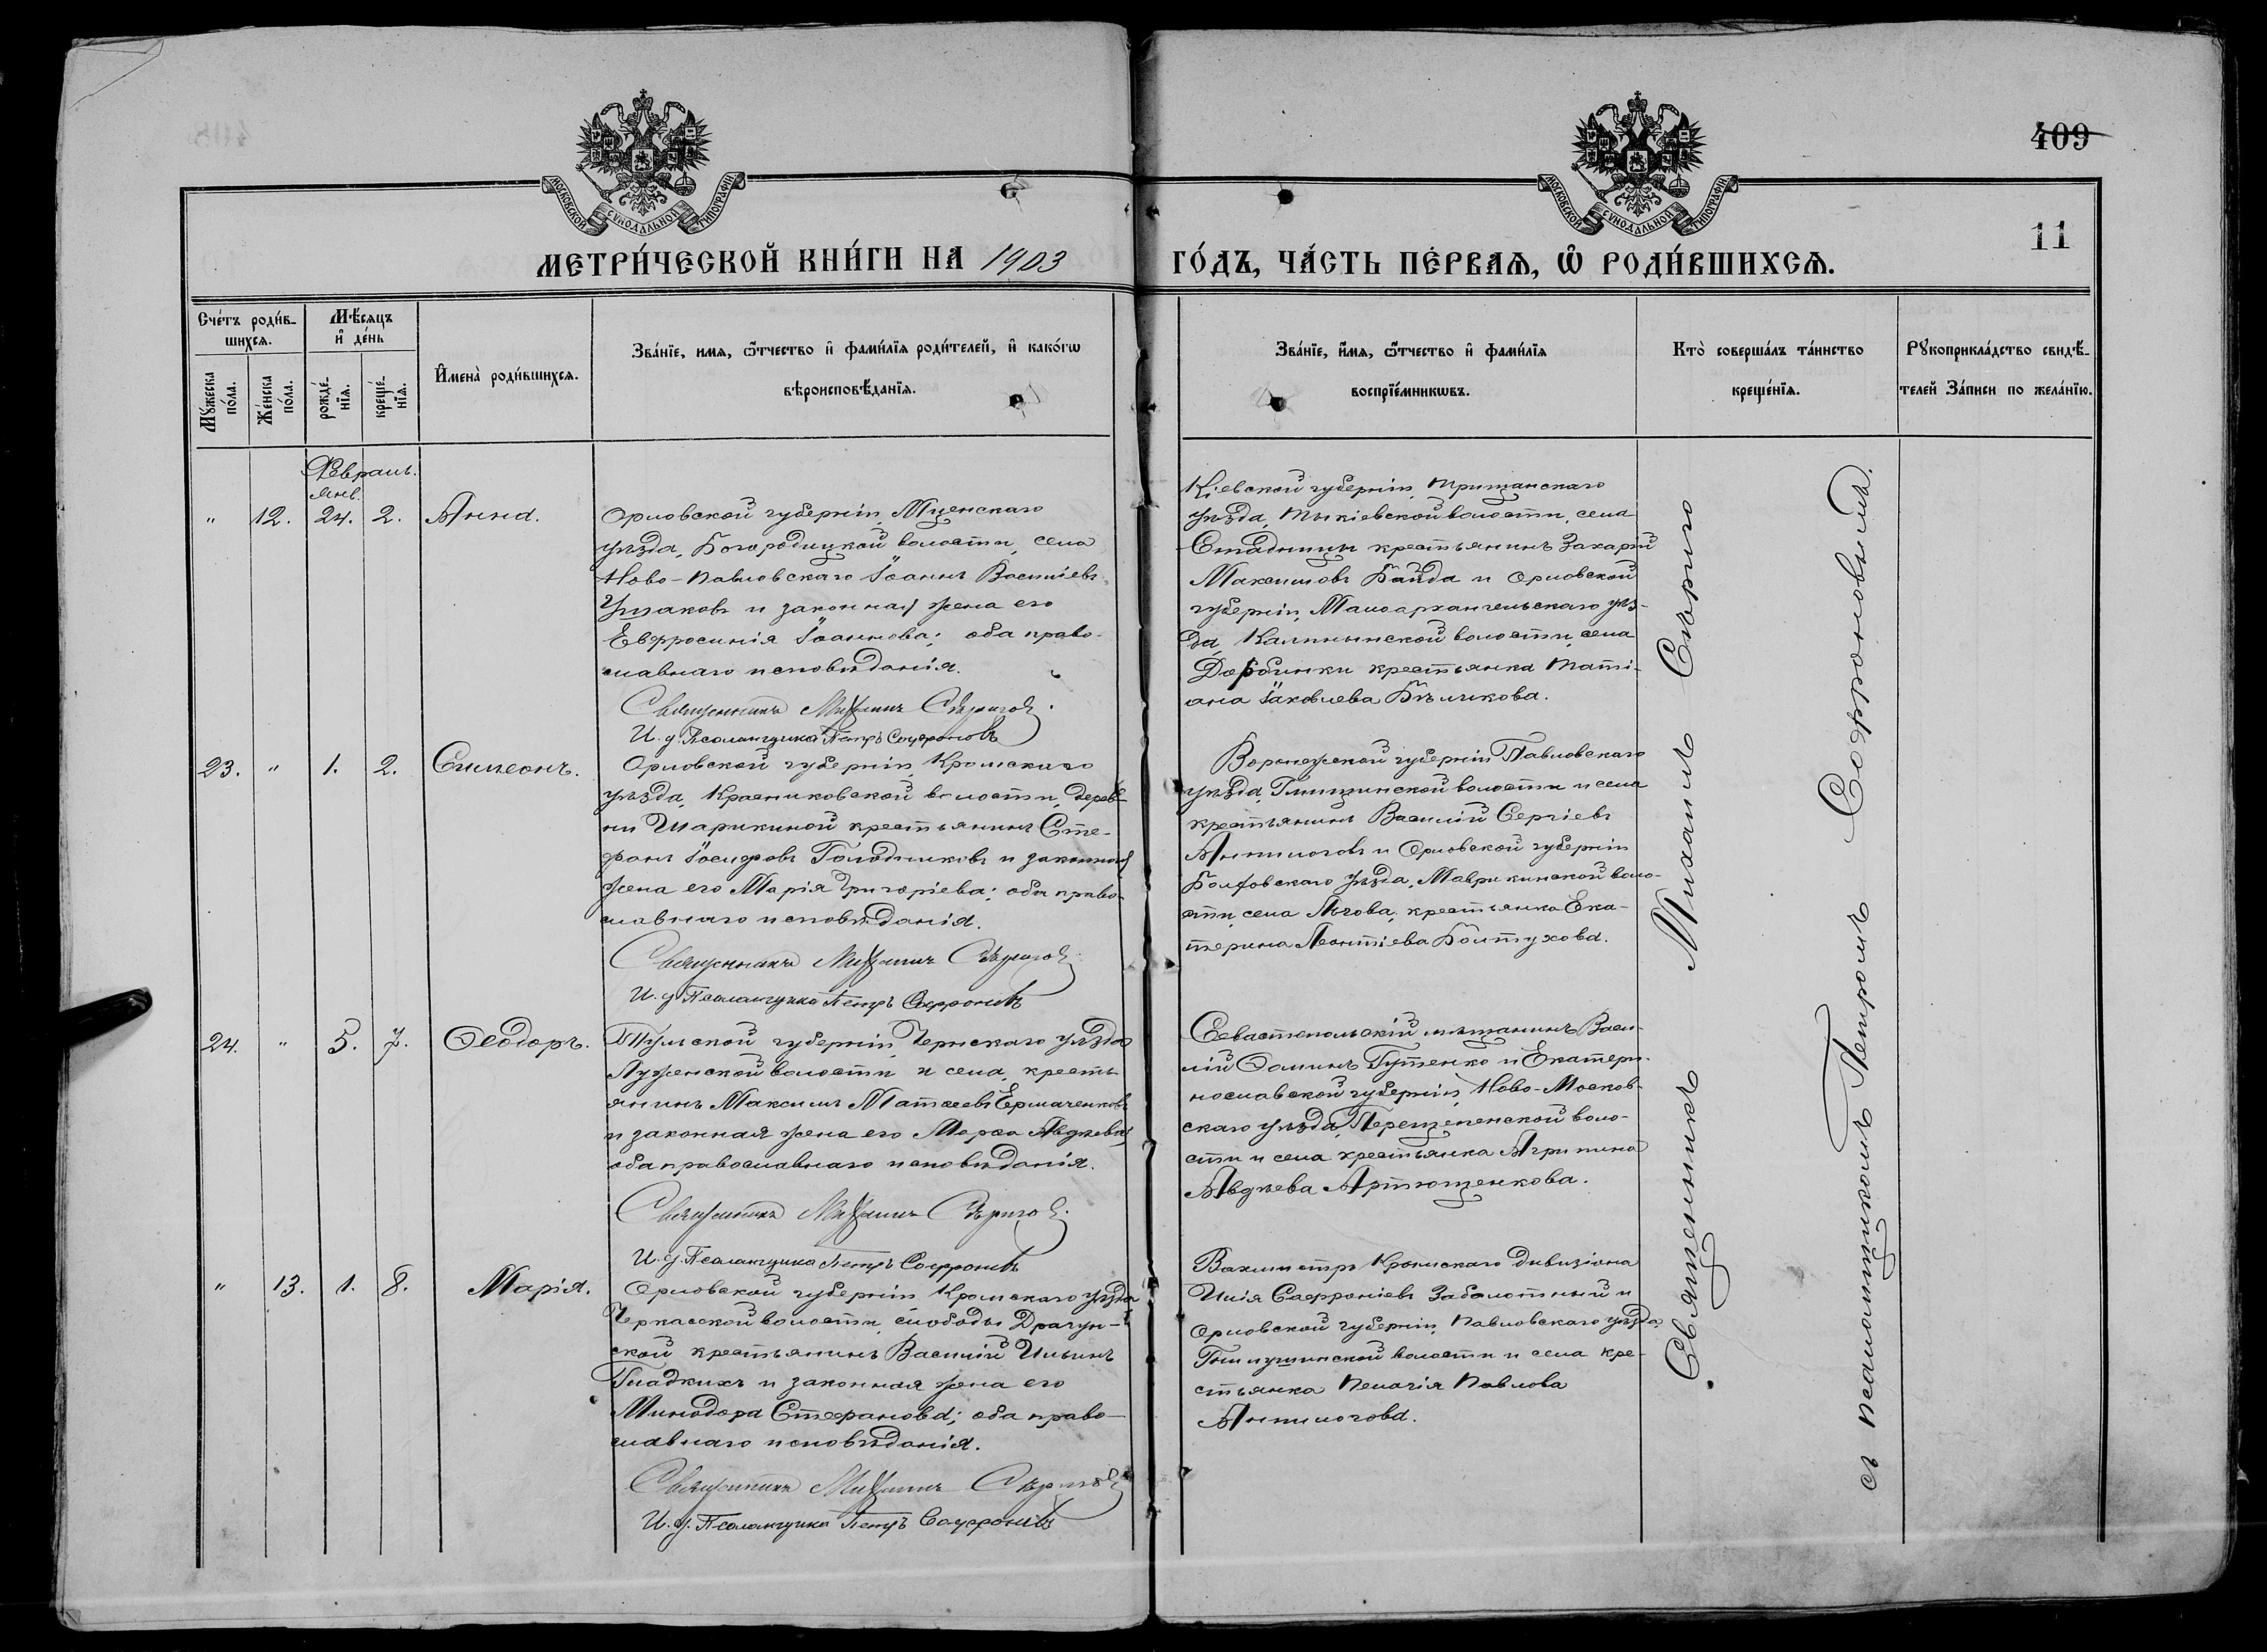 409
11
МОСКОВСКОЙ СѴНОДАЛЬНОЙ ТИПОГРАФІИ
МОСКОВСКОЙ СѴНОДАЛЬНОЙ ТИПОГРАФІИ
МЕТРИ́ЧЕСКОЙ КНИ́ГИ НА 1903
ГО́ДЪ, ЧА́СТЬ ПЕ́РВАѦ, Ѡ РОДИ́ВШИХСѦ.
Сче́тъ роди́в-
шихсѧ.
Мѣ́сѧцъ
и де́нь
Мꙋ́жеска
по́ла.
Же́нска
по́ла.
рожде́-
нїѧ.
креще́-
нїѧ.
Имена̀ роди́вшихсѧ.
Зва́нїе, имѧ, ѿтчество и фами́лїѧ роди́телей, и како́гѡ
вѣроисповѣ́данїѧ.
Зва́нїе, и́мѧ, ѿтчество и фами́лїѧ
воспрїе́мникѡвъ.
Кто̀ соверша́лъ та́инство
креще́нїѧ.
Рꙋкоприкла́дство свидѣ́-
телей За́писи по жела́нїю.
Феврал.
Янв.
" 12. 24. 2. Анна.
Орловской губерніи, Мценскаго
уѣзда, Богородицкой волости, села
Ново-Павловскаго Іоаннъ Васильевъ
Ушаковъ и законная жена его
Евфросинія Іоаннова; оба право-
славнаго исповѣданія.
Священникъ Михаилъ Сѣриговъ.
И. д. Псаломщика Петръ Софроновъ
Кіевской губерніи,
уѣзда, волости, села
крестьянинъ Захарій
Максимовъ Байда и Орловской
губерніи, Малоархангельскаго уѣз-
да, волости, села
крестьянка Таті-
ана Іаковлева Бѣликова.
23. " 1. 2. Симеонъ.
Орловской губерніи, Кромскаго
уѣзда, Красниковской волости, дерев-
ни Шарикиной крестьянинъ Сте-
фанъ Іосифовъ Голодниковъ и законная
жена его Марія Григоріева; оба право-
славнаго исповѣданія.
Священникъ Михаилъ Сѣриговъ
И. д. Псаломщика Петръ Софроновъ
Воронежской губерніи Павловскаго
уѣзда, волости и села
крестьянинъ Василій Сергіевъ
Анпилоговъ и Орловской губерніи
Болховскаго уѣзда, воло-
сти, села Льгова, крестьянка Ека-
терина Леонтіева Болтухова.
24. " 5. 7. Ѳеодоръ.
Тульской губерніи, Чернскаго уѣзда
Луженской волости и села, кресть-
янинъ Максимъ Матѳеевъ Ермаченковъ
и законная жена его Марѳа Авдѣева;
оба православнаго исповѣданія.
Священникъ Михаилъ Сѣриговъ.
И. д. Псаломщика Петръ Софроновъ
Севастопольскій мѣщанинъ Васи-
лій Ѳоминъ Гутенко и Екатери-
нославской губерніи, Ново-Москов-
скаго уѣзда, Перещепенской воло-
сти и села крестьянка Агрипина
Авдѣева Артющенкова.
" 13. 1. 8. Марія.
Орловской губерніи Кромскаго уѣзда
Черкасской волости, слободы Драгун-
ской крестьянинъ Василій Ильинъ
Гладкихъ и законная жена его
Минодора Стефанова; оба право-
славнаго исповѣданія.
Священникъ Михаилъ Сѣриговъ
И. д. Псаломщика Петръ Софроновъ
Вахмистръ Крымскаго дивизіона
Илія Софроніевъ Заболотный и
Орловской губерніи, Павловскаго уѣзда
волости и села кре-
стьянка Пелагія Павлова
Анпилогова.
Священникъ Михаилъ
съ псаломщикомъ Петромъ Софроновымъ.